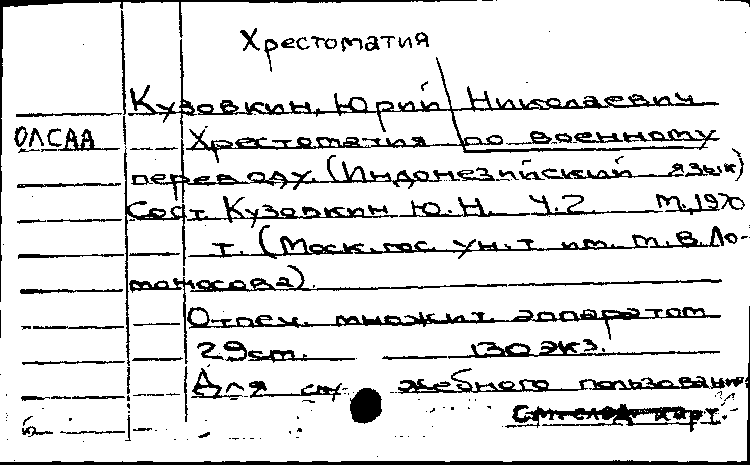 Хрестоматия
Кузовкин, Юрий Николаевич
ОЛСАА Хрестоматия по военному
переводу. (Индонезийский язык)
Сост Кузовкин Ю.Н. Ч.2. М., 1970
т. (Моск. гос. ун.т им. М.В. Ло-
моносова).
Отпеч. множит. аппаратом
29 ст. 130 экз.
Для служебного пользования
карт.